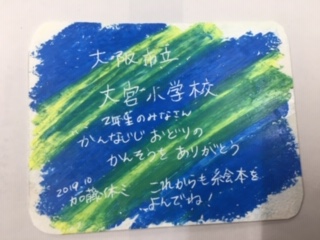 大阪市立
大宮小学校
2年生のみなさん
かんなじじ おどりの
かんそうを ありがとう
2019.10
加藤休ミ
これからも絵本を
よんでね!